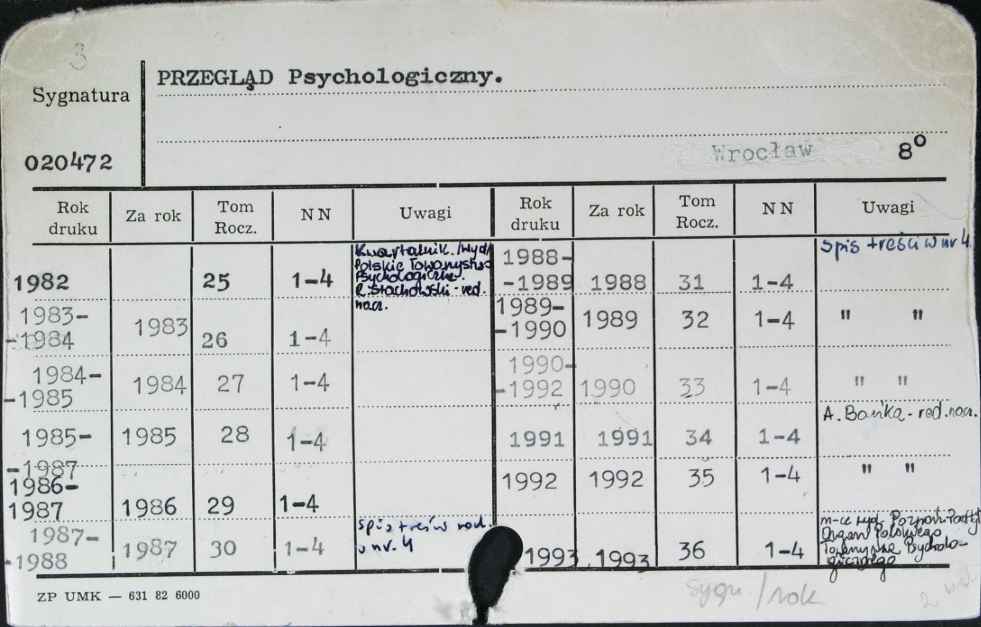 3
PRZEGLĄD Psychologiczny.
Sygnatura
020472
Wrocław 8°
Rok druku Za rok Tom Rocz. NN Uwagi Rok druku Za rok Tom Rocz. NN Uwagi
1982 25 1-4 Kwartalnik. /Wyd/ Polskie Towarzystwo Psychologiczne. R. Stachowski - red. nacz.
1983-
-1984 1983 26 1-4
1984-
-1985 1984 27 1-4
1985-
-1987 1985 28 1-4
1986-
1987 1986 29 1-4
1987-
-1988 1987 30 1-4 spis treści w nr. 4
1988-
-1989 1988 31 1-4 Spis treści w nr 4.
1989-
-1990 1989 32 1-4 " "
1990-
-1992 1990 33 1-4 " "
1991 1991 34 1-4 A. Bańka - red. nacz.
1992 1992 35 1-4 " "
1993 1993 36 1-4 m-ce wyd. Poznań. Organ Polskiego Towarzystwa Psychologicznego
ZP UMK — 631 82 6000
sygn/rok